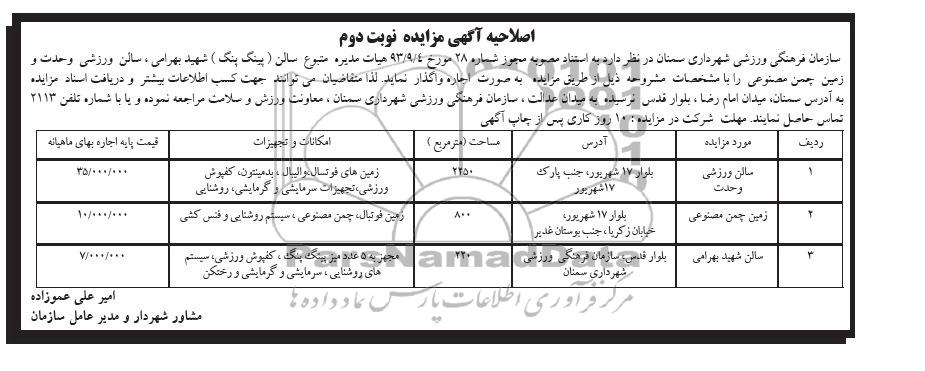 اصلاحیه آگهی مزایده نوبت دوم
سازمان فرهنگی ورزشی شهرداری سمنان در نظر دارد به استناد مصوبه مجوز شماره ۲۸ مورخ ۹۳/۹/۴ هیات مدیره متبوع سالن ( پینگ پنگ ) شهید بهرامی ، سالن ورزشی وحدت و
زمین چمن مصنوعی را با مشخصات مشروحه ذیل از طریق مزایده به صورت اجاره واگذار نماید. لذا متقاضیان می توانند جهت کسب اطلاعات بیشتر و دریافت اسناد مزایده
به آدرس سمنان، میدان امام رضا ، بلوار قدس نرسیده به میدان عدالت ، سازمان فرهنگی ورزشی شهرداری سمنان ، معاونت ورزش و سلامت مراجعه نموده و یا با شماره تلفن ۲۱۱۳
تماس حاصل نمایند. مهلت شرکت در مزایده : ۱۰ روز کاری پس از چاپ آگهی
ردیف مورد مزایده آدرس مساحت (مترمربع ) امکانات و تجهیزات قیمت پایه اجاره بهای ماهیانه
۱ سالن ورزشی وحدت بلوار ۱۷ شهریور، جنب پارک ۱۷شهریور ۲۲۵۰ زمین های فوتسال،والیبال ، بدمینتون، کفپوش ورزشی،تجهیزات سرمایشی و گرمایشی، روشنایی ۳۵/۰۰۰/۰۰۰
۲ زمین چمن مصنوعی بلوار ۱۷ شهریور، خیابان زکریا ، جنب بوستان غدیر ۸۰۰ زمین فوتبال، چمن مصنوعی ، سیستم روشنایی و فنس کشی ۱۰/۰۰۰/۰۰۰
۳ سالن شهید بهرامی بلوار قدس، سازمان فرهنگی ورزشی شهرداری سمنان ۲۲۰ مجهز به ۵ عدد میز پینگ پنگ ، کفپوش ورزشی، سیستم های روشنایی ، سرمایشی و گرمایشی و رختکن ۷/۰۰۰/۰۰۰
امیر علی عموزاده
مشاور شهردار و مدیر عامل سازمان
ParsNamadData
مرکز فرآوری اطلاعات پارس نماد داده ها